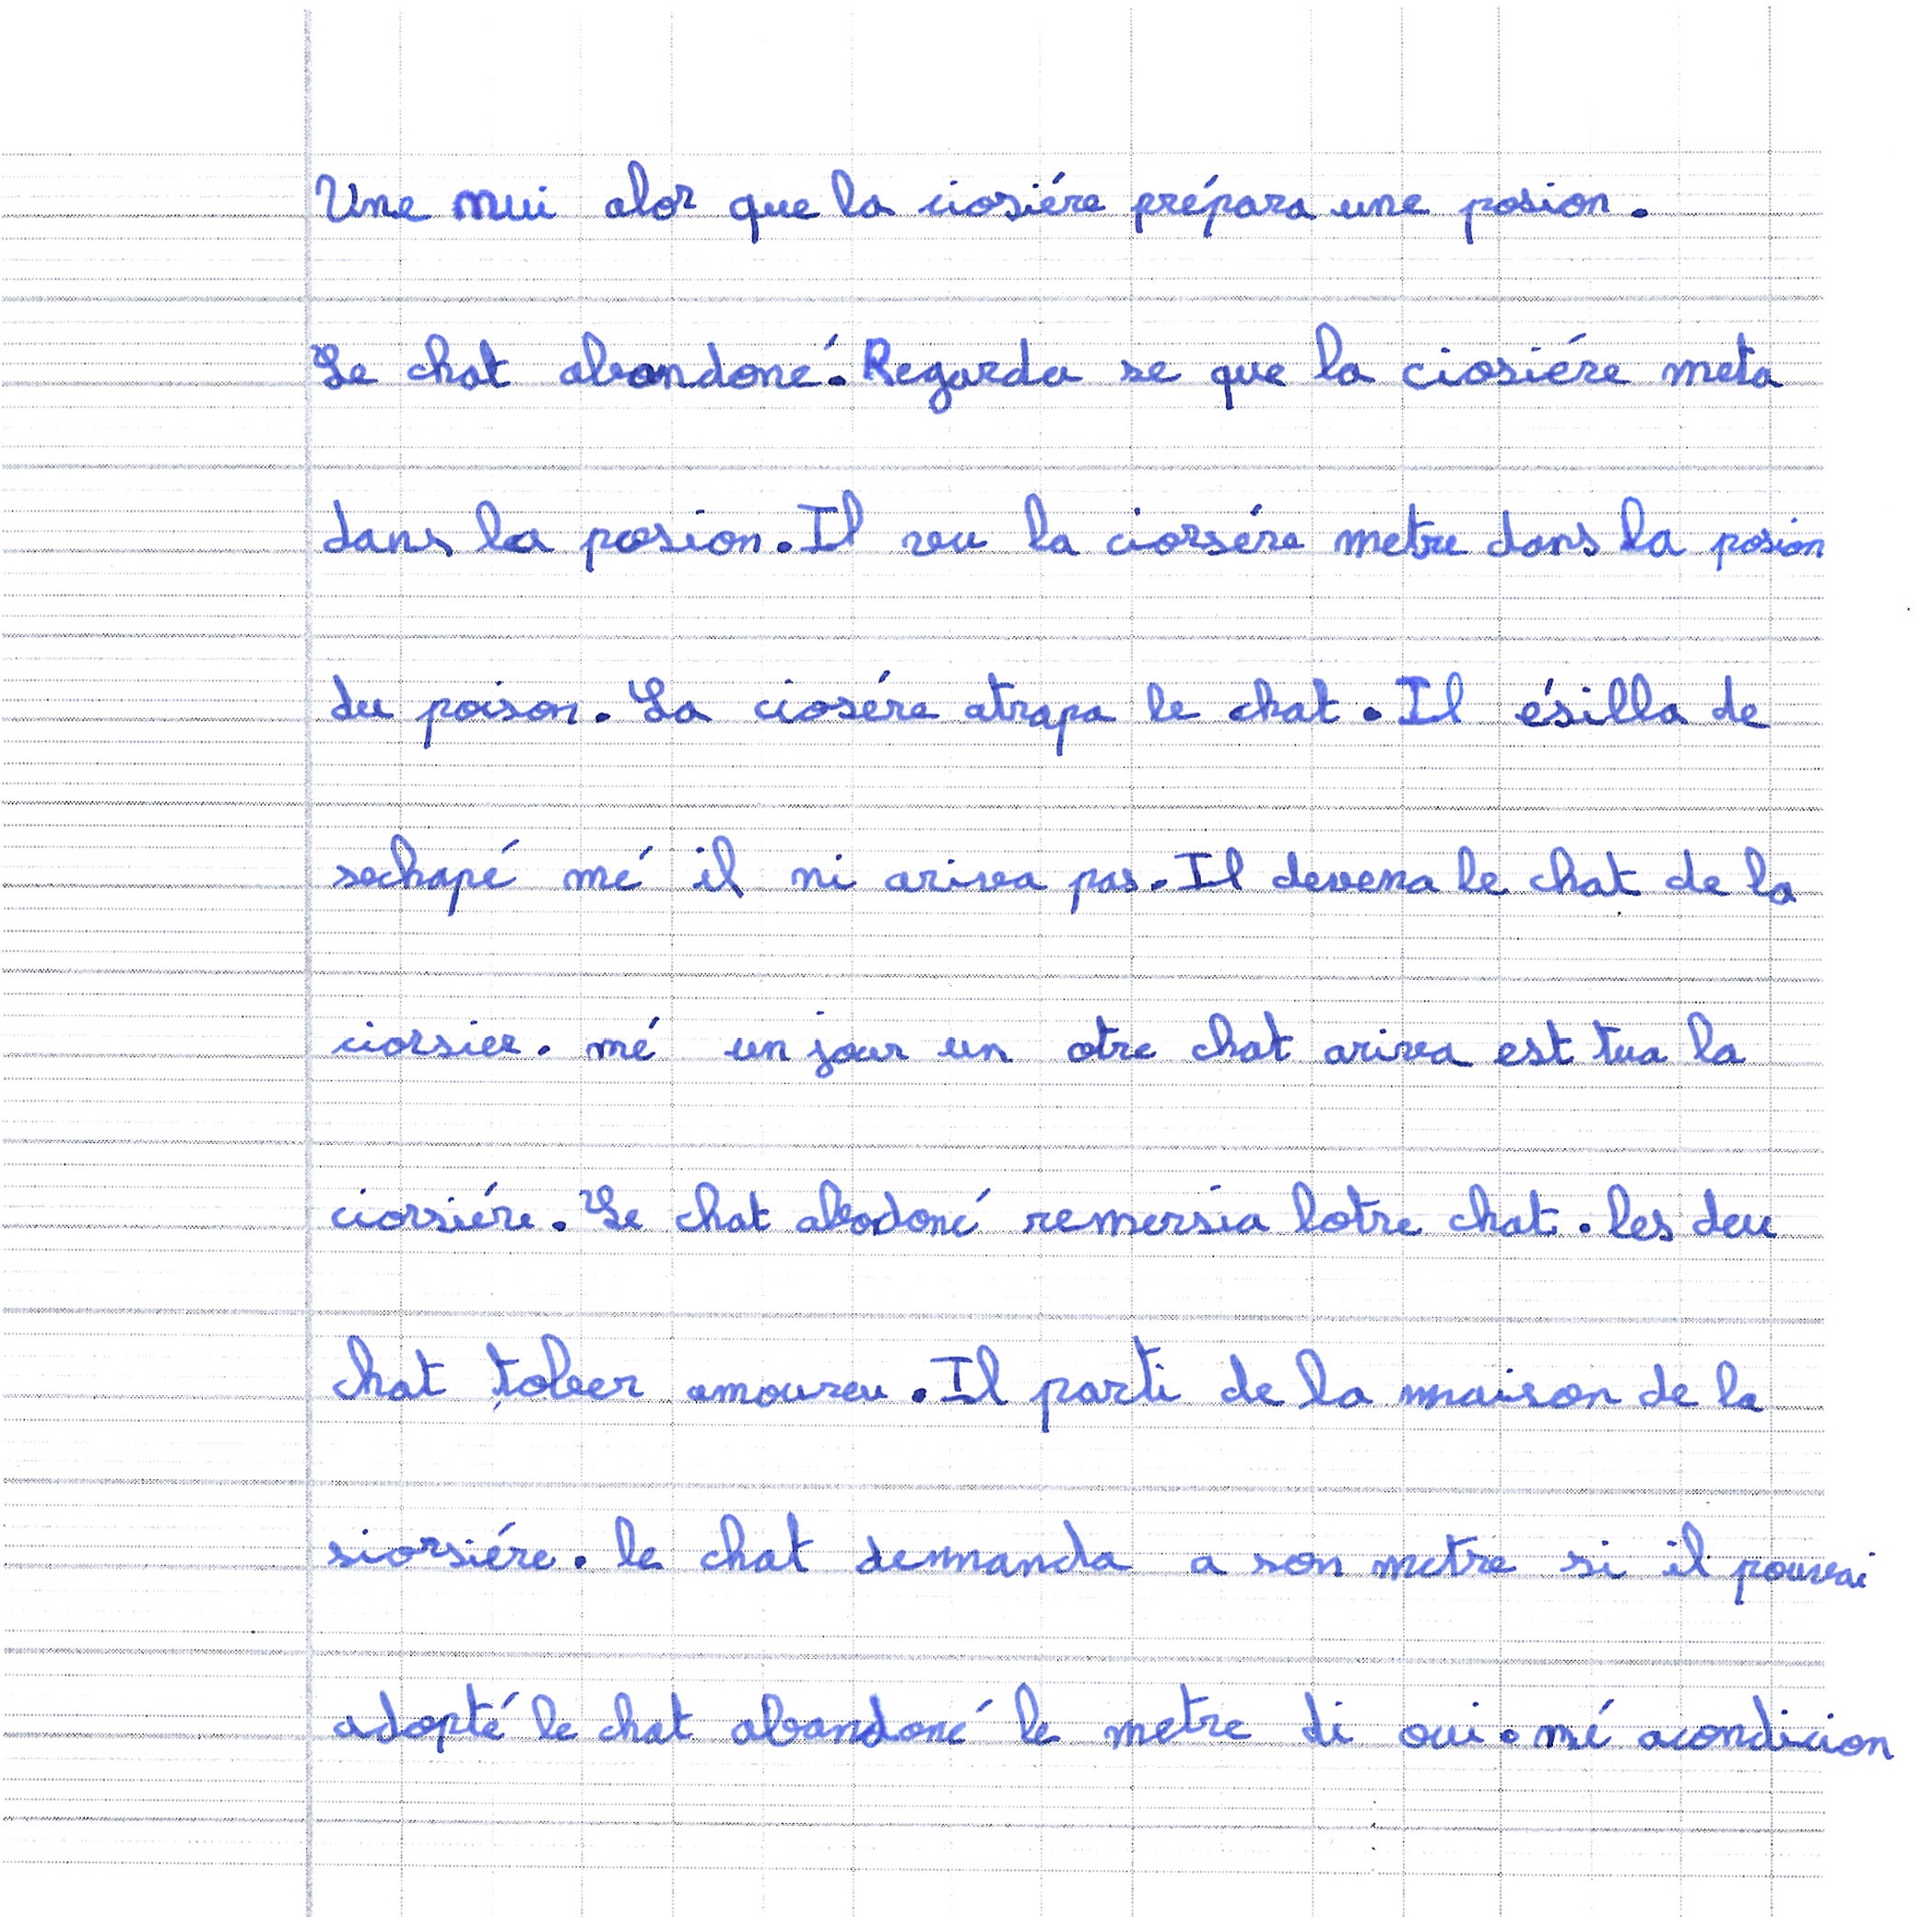 Une nui alor que la ciosiére prépara une posion.
Le chat abandoné. Regarda se que la ciosiére meta
dans la posion. Il veu la ciorsére metre dans la posion
du poison. La ciosére atrapa le chat. Il ésilla de
sechapé mé il ni ariva pas. Il devena le chat de la
ciorsier. mé un jour un otre chat ariva est tua la
ciorsiére. Le chat abodoné remersia lotre chat. les deu
chat tober amoureu. Il parti de la maison de la
siorsiére. le chat demanda a son metre si il pouvai
adopté le chat abandoné le metre di oui. mé acondicion